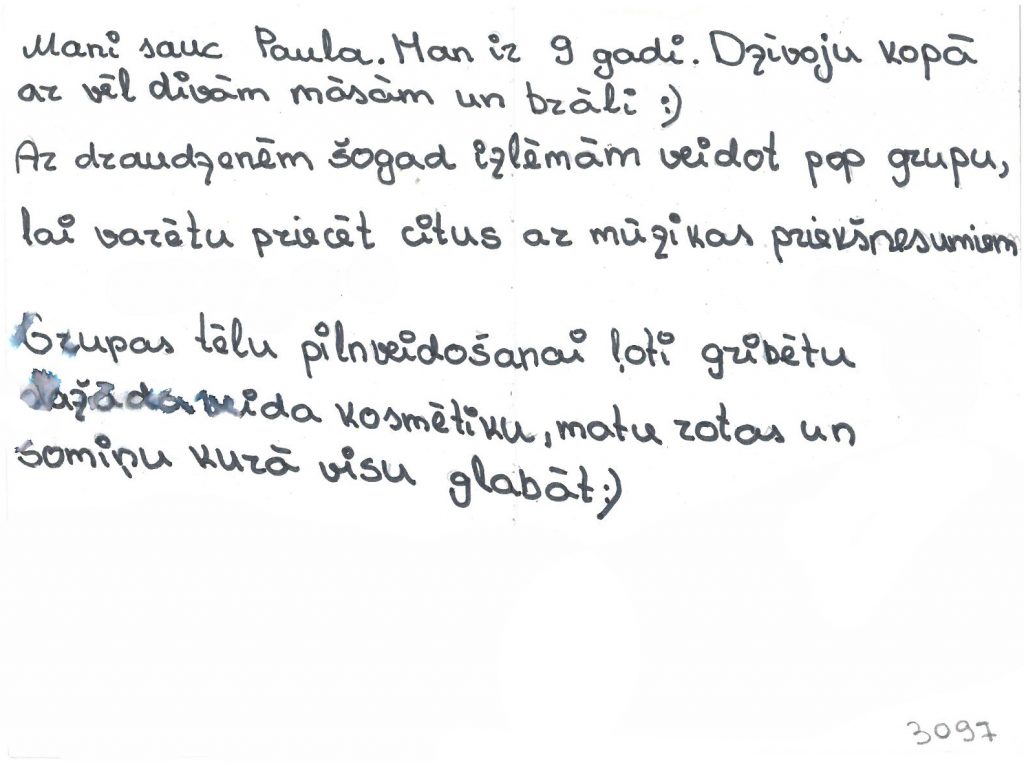 Mani sauc Paula. Man ir 9 gadi. Dzīvoju kopā
ar vēl divām māsām un brāli :)
Ar draudzenēm šogad izlēmām veidot pop grupu,
lai varētu priecēt citus ar mūzikas priekšnesumiem
Grupas tēlu pilnveidošanai ļoti gribētu
dažāda veida kosmētiku, matu rotas un
somiņu kurā visu glabāt :)
3097